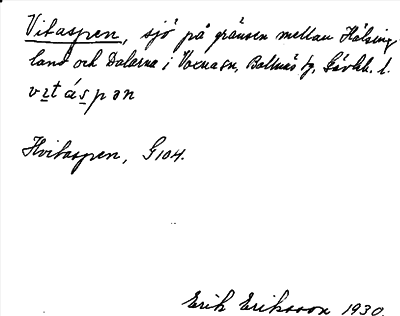 Vitaspen, sjö på gränsen mellan Hälsing-
land och Dalarna i Voxna sn, Bollnäs tg, Gävleb. l.
vıtáspən
Hvitaspen, G104.
Erik Eriksson 1930.